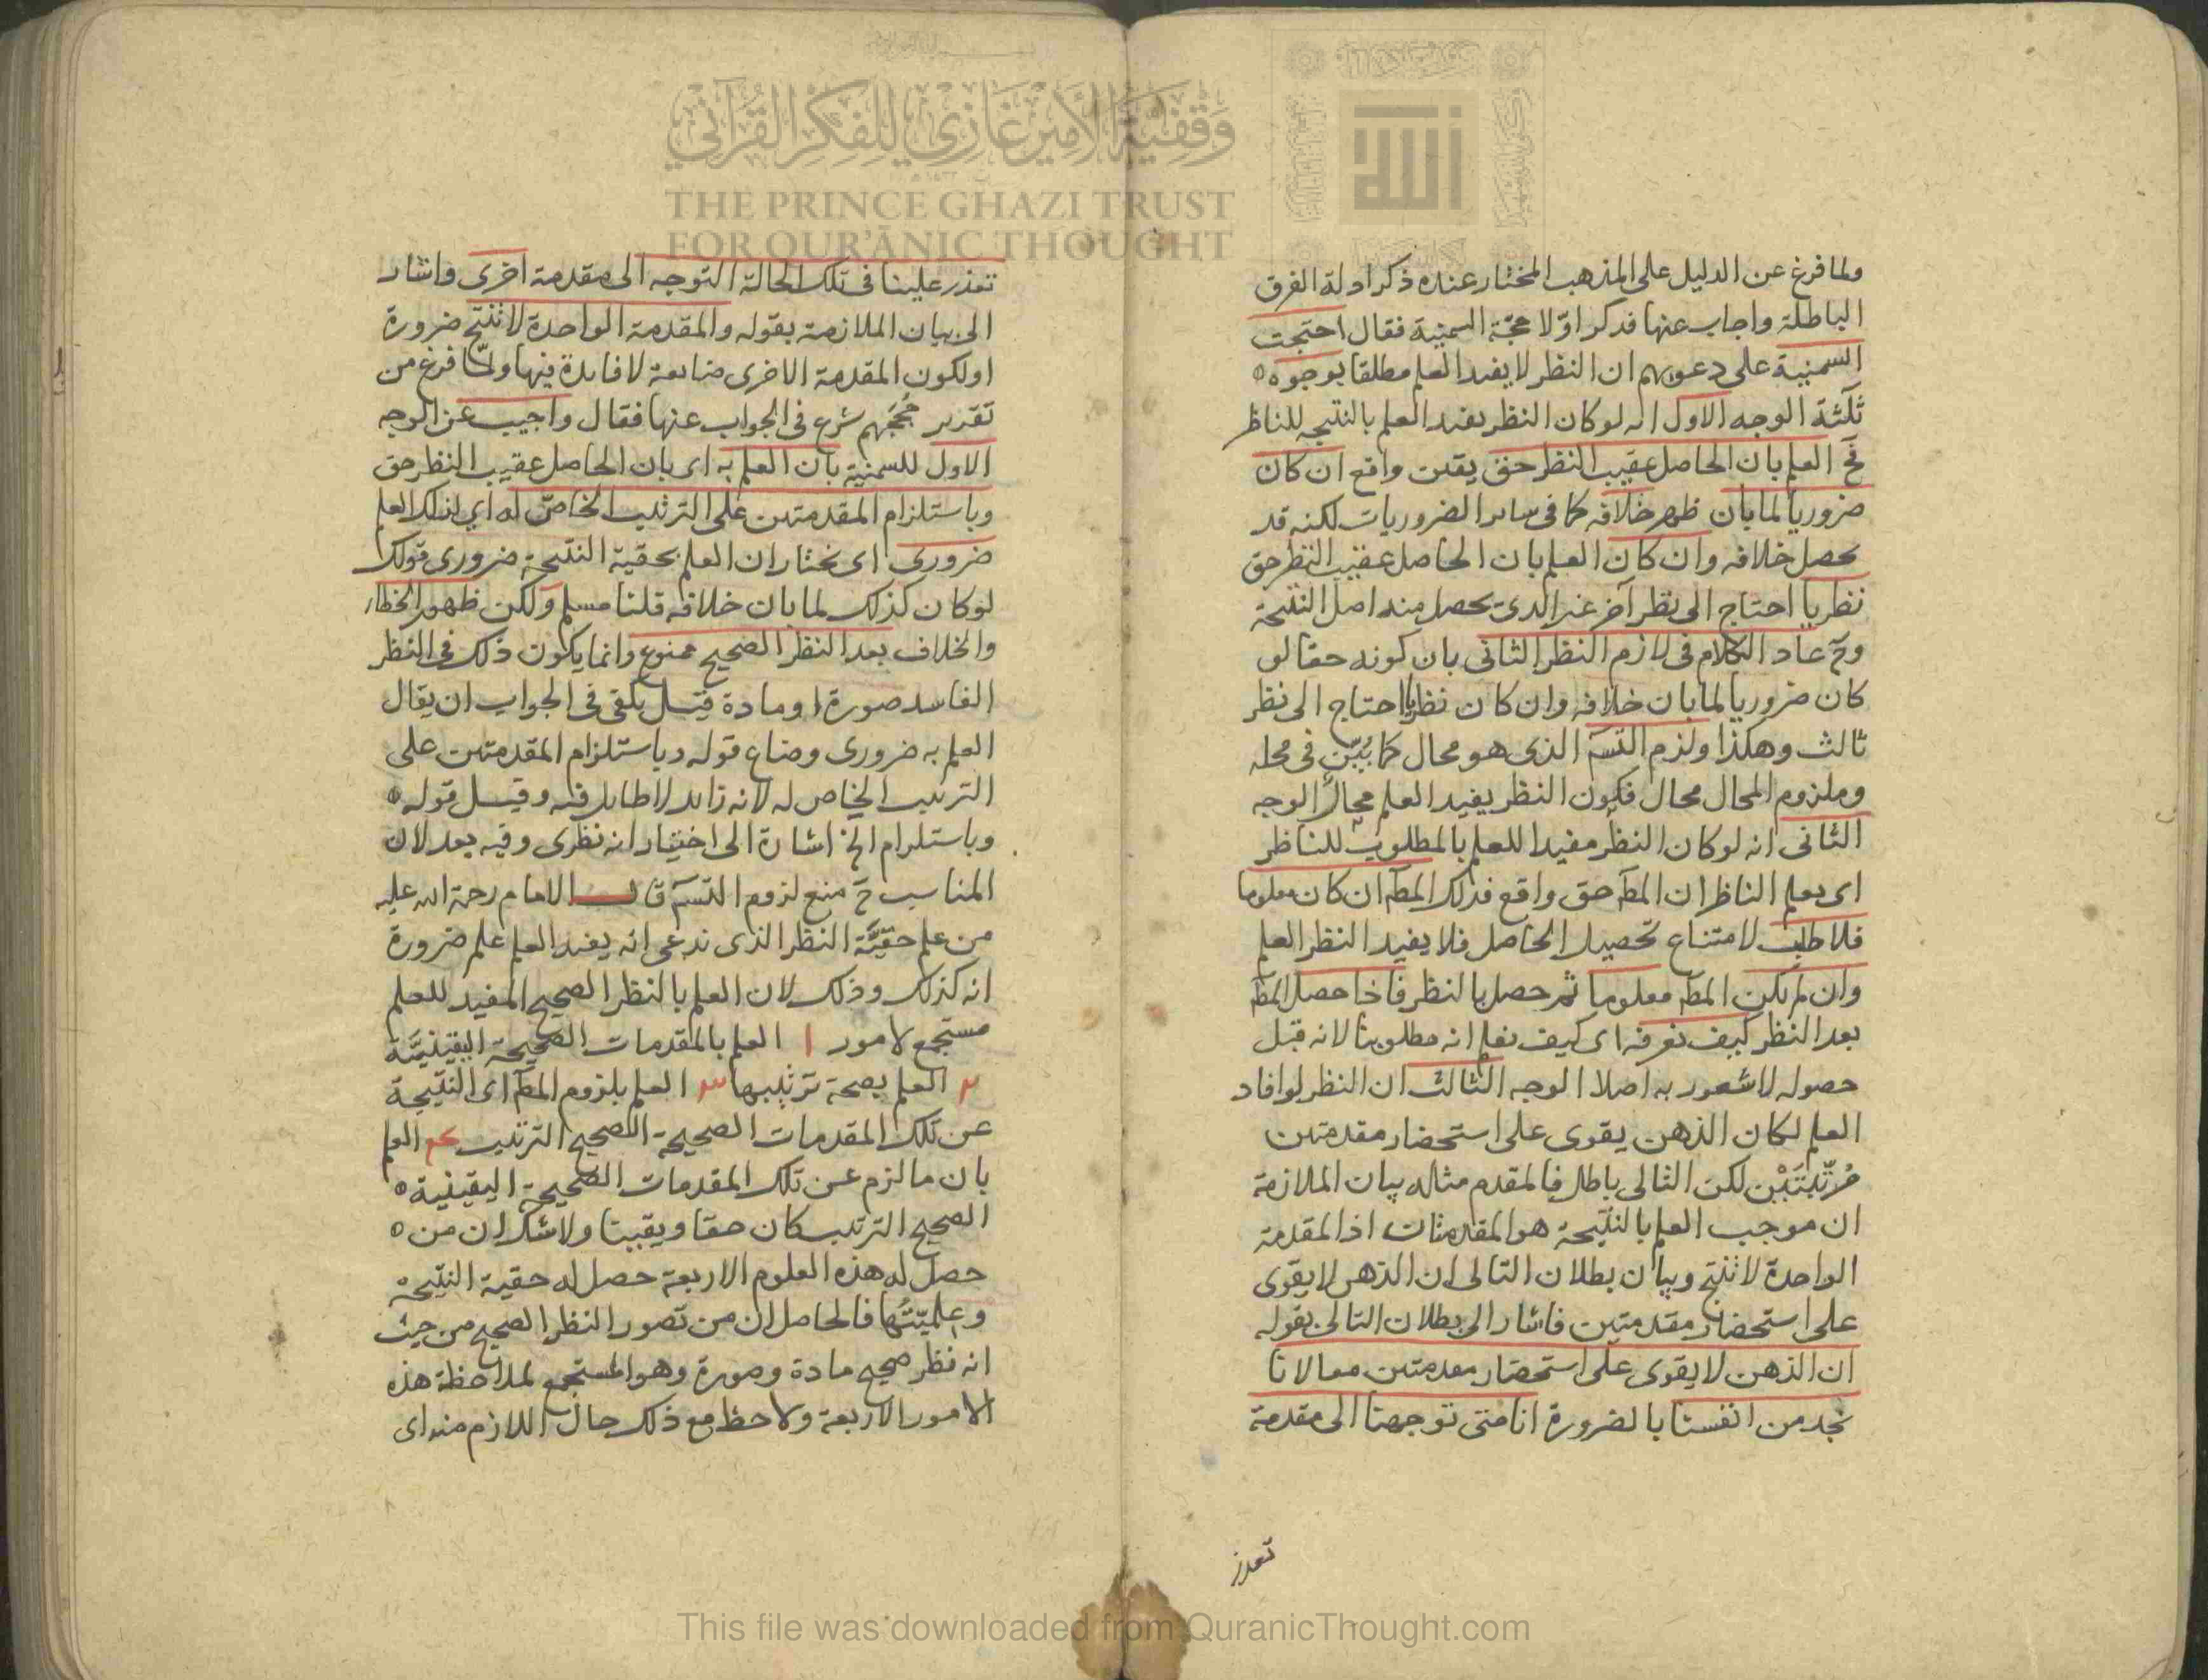 ولما فرغ عن الدليل على المذهب المختار عنده ذكر ادلة الفرق
الباطلة واجاب عنها فذكر اوّلا حجّة السمنية فقال احتجت
السمنية على دعويهم ان النظر لا يفيد العلم مطلقا بوجوه
ثلثة الوجه الاول انه لو كان النظر يفيد العلم بالنتيجه للناظر
فح العلم بان الحاصل عقيب النظر حق يقين واقع ان كان
ضروريا لما بان ظهر خلافه كما في ساير الضروريات لكنه قد
يحصل خلافه وان كان العلم بان الحاصل عقيب النظر حق
نظريا احتاج الى نظر آخر غير الذي يحصل منه اصل النتيجة
وح عاد الكلام في لازم النظر الثاني بان كونه حقا لو
كان ضروريا لما بان خلافه وان كان نظريا احتاج الى نظر
ثالث وهكذا ولزم التسۤ الذي هو محال كما بُيّن في محله
وملزوم المحال محال فكون النظر يفيد العلم محالا الوجه
الثاني انه لو كان النظر مفيدا للعلم بالمطلوب للناظر
اى يعلم الناظر ان المطۤ حق واقع فذلك المطۤ ان كان معلوما
فلا طلب لامتناع تحصيل الحاصل فلا يفيد النظر العلم
وان لم يكن المطۤ معلوما ثم حصل بالنظر فاذا حصل المطۤ
بعد النظر كيف نعرفه اى كيف نعلم انه مطلوبنا لانه قبل
حصوله لا شعور به اصلا الوجه الثالث ان النظر لو افاد
العلم لكان الذهن يقوى على استحضار مقدمتين
مُرَتَّبَتَيْن لكن التالى باطل فالمقدم مثاله بيان الملازمة
ان موجب العلم بالنتيجة هو المقدمتان اذ المقدمة
الواحدة لا تنتج وبيان بطلان التالى ان الذهن لا يقوى
على استحضار مقدمتين فاشار الى بطلان التالى بقوله
ان الذهن لا يقوى على استحضار مقدمتين معا لانا
نجد من انفسنا بالضرورة انا متى توجهنا الى مقدمة
تعذر
تعذر علينا في تلك الحالة التوجه الى مقدمة اخرى واشار
الى بيان الملازمة بقوله والمقدمة الواحدة لا تنتج ضرورة
او لكون المقدمة الاخرى ضايعة لا فايدة فيها ولمّا فرغ من
تقدير حُجَجهم شرع في الجواب عنها فقال واجيب عن الوجه
الاول للسمنية بان العلم به اى بان الحاصل عقيب النظر حق
وباستلزام المقدمتين على الترتيب الخاصّ له اي لذلك العلم
ضروري اى نختار ان العلم بحقية النتيجة ضروري قولك
لو كان كذلك لما بان خلافه قلنا مسلم ولكن ظهور الخطاء
والخلاف بعد النظر الصحيح ممنوع وانما يكون ذلك في النظر
الفاسد صورة او مادة قيل يكفى في الجواب ان يقال
العلم به ضرورى وضاع قوله وباستلزام المقدمتين على
الترتيب الخاص له لانه زايد لا طايل فيه وقيل قوله
وباستلزام الخ اشارة الى اختيار انه نظرى وفيه بعد لان
المناسب ح منع لزوم التسۤ قال الامام رحمة الله عليه
من علم حقيَّة النظر الذى ندعى انه يفيد العلم علم ضرورة
انه كذلك وذلك لان العلم بالنظر الصحيح المفيد للعلم
مستجمع لامور ا العلم بالمقدمات الصحيحة اليقينيّة
٢ العلم بصحة ترتيبها ٣ العلم بلزوم المطۤ اى النتيجة
عن تلك المقدمات الصحيحة الصحيح الترتيب ٤ العلم
بان ما لزم عن تلك المقدمات الصحيحة اليقينية
الصحيح الترتيب كان حقا ويقينا ولا شك ان من
حصل له هذه العلوم الاربعة حصل له حقية النتيجة
وعلميّتها فالحاصل ان من تصور النظر الصحيح من حيث
انه نظر صحيح مادة وصورة وهو المستجمع لملاحظة هذه
الامور الاربعة ولاحظ مع ذلك حال اللازم منه اى
وقفية الأمير غازي للفكر القرآني
THE PRINCE GHAZI TRUST
FOR QUR'ĀNIC THOUGHT
This file was downloaded from QuranicThought.com